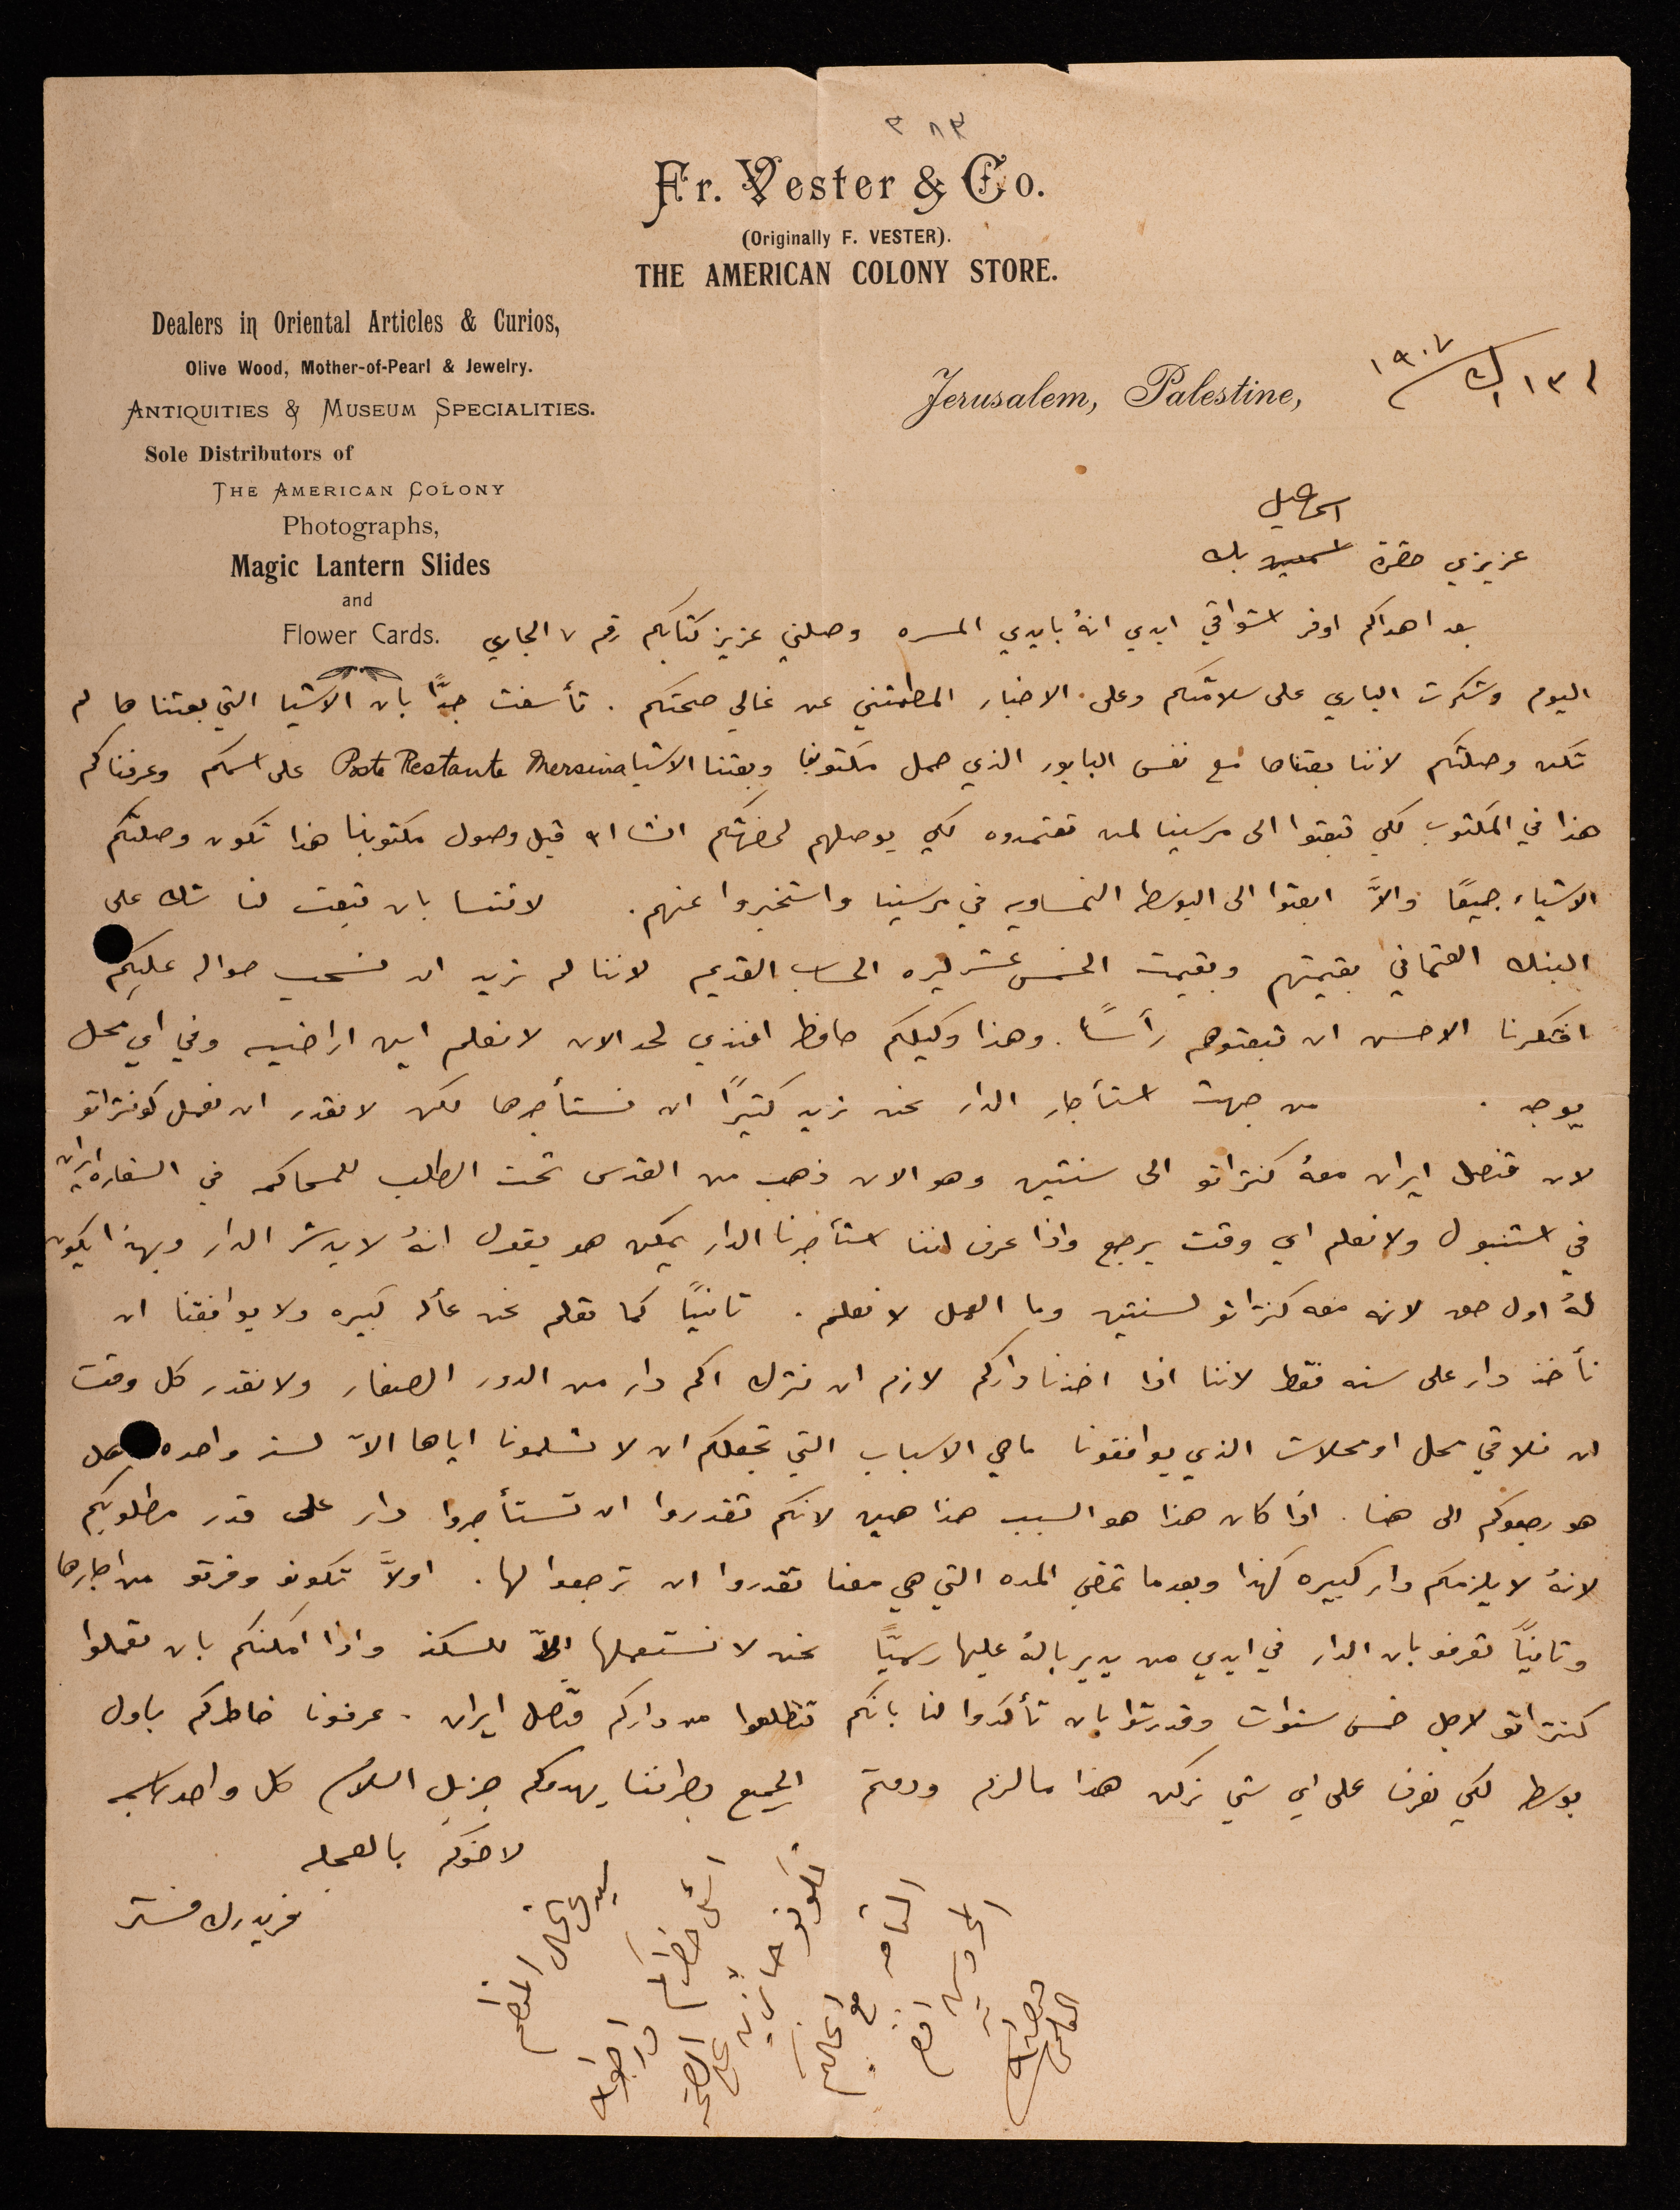 ٣٨٣
Fr. Vester & Co.
(Originally F. VESTER).
THE AMERICAN COLONY STORE.
Dealers in Oriental Articles & Curios,
Olive Wood, Mother-of-Pearl & Jewelry.
ANTIQUITIES & MUSEUM SPECIALITIES.
Sole Distributors of
THE AMERICAN COLONY
Photographs,
Magic Lantern Slides
and
Flower Cards.
Jerusalem, Palestine,
١٣ ك١ ١٩٠٧
اسماعيل
عزيزي حضرة اسمعين بك
بعد اهداكم اوفر اشواقي ابدي انهُ بايدي المسره وصلني عزيز كتابكم رقم ٧ الجاري
اليوم وشكرت الباري على سلامتكم وعلى الاخبار المطمئنني عن غالي صحتكم . تأسفت جدًّا بان الاشيا التي بعتناها لم
تكن وصلتكم لاننا بعتناها مع نفس البابور الذي حمل مكتوبنا وبعتنا الاشيا Poste Restante Mersina على اسمكم وعرفناكم
هذا في المكتوب لكي تبعتوا الى مرسينا لمن تعتمدوه لكي يوصلهم لحضرتكم انشاالله قبل وصول مكتوبنا هذا تكون وصلتكم
الاشياء جميعًا والاَّ ابعتوا الى البوسطه النمساويه في مرسينا واستخبروا عنهم . لا تنسا بان تبعت لنا شك على
البنك العثماني بقيمتهم وبقيمت الخمس عشر ليره الحساب القديم لاننا لم نريد ان نسحب حواله عليكم
افتكرنا الاحسن ان تبعتوهم رأسًا . وهذا وكيلكم حافظ افندي لحد الان لا نعلم اين اراضيه وفي اي محل
يوجد . من جهت استأجار الدار نحن نريد كتيرًا ان نستأجرها لكن لا نقدر ان نعمل كونتراتو
لان قنصل ايران معهُ كنتراتو الى سنتين وهو الان ذهب من القدس تحت الطلب للمحاكمه في السفاره ايران
في استنبول ولا نعلم اي وقت يرجع واذا عرف اننا استأجرنا الدار يمكن هو يقول انهُ لا يدشر الدار وبهذا يكون
لهُ اول حق لانه معه كنتراتو لسنتين وما العمل لا نعلم . تانيًا كما تعلم نحن عأله كبيره ولا يوافقنا ان
نأخذ دار على سنه فقط لاننا اذا اخذنا داركم لازم ان نترك اكم دار من الدور الصغار ولا نقدر كل وقت
ان نلاقي محل او محلات الذي يوافقونا ما هي الاسباب التي تجعلكم ان لا تسلمونا اياها الاّ لسنه واحده هل
هو رجعوكم الى هنا . اذا كان هذا هو السبب هذا هين لانكم تقدروا ان تستأجروا دار على قدر مطلوبكم
لانهُ لا يلزمكم دار كبيره كهذا وبعدما تمضي المده التي هي معنا تقدروا ان ترجعوا لها . اولاً تكونو وفرتو من اجارها
وتانيًا تعرفو بان الدار في ايدي من يدير بالهُ عليها رسميًّا نحن لا نستعملها الاّ للسكنه واذا امكنكم بان تعملوا
كنتراتو لاجل خمس سنوات وقدرتوا بان تأكدوا لنا بانكم تطلعوا من داركم قنصل ايران . عرفونا خاطركم باول
بوسطه لكي نعرف على اي شي نركن هذا ما لزم ودمتم الجميع بطرافنا يهدوكم جزيل السلام كل واحد باسمه
لاخوكم بالعجله
فريدرك فستر
سيدي الخال المفخم
اسئل خاطركم وارجو الله
تكونو حائزين على الصحه
التامه مع انجالكم
المحروسين افندم